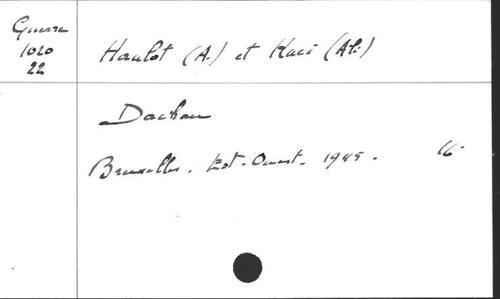 Guerre
1020
22
Haulot (A.) et Kuci (Ali)
Dachau
Bruxelles. Est-Ouest. 1945.
16°